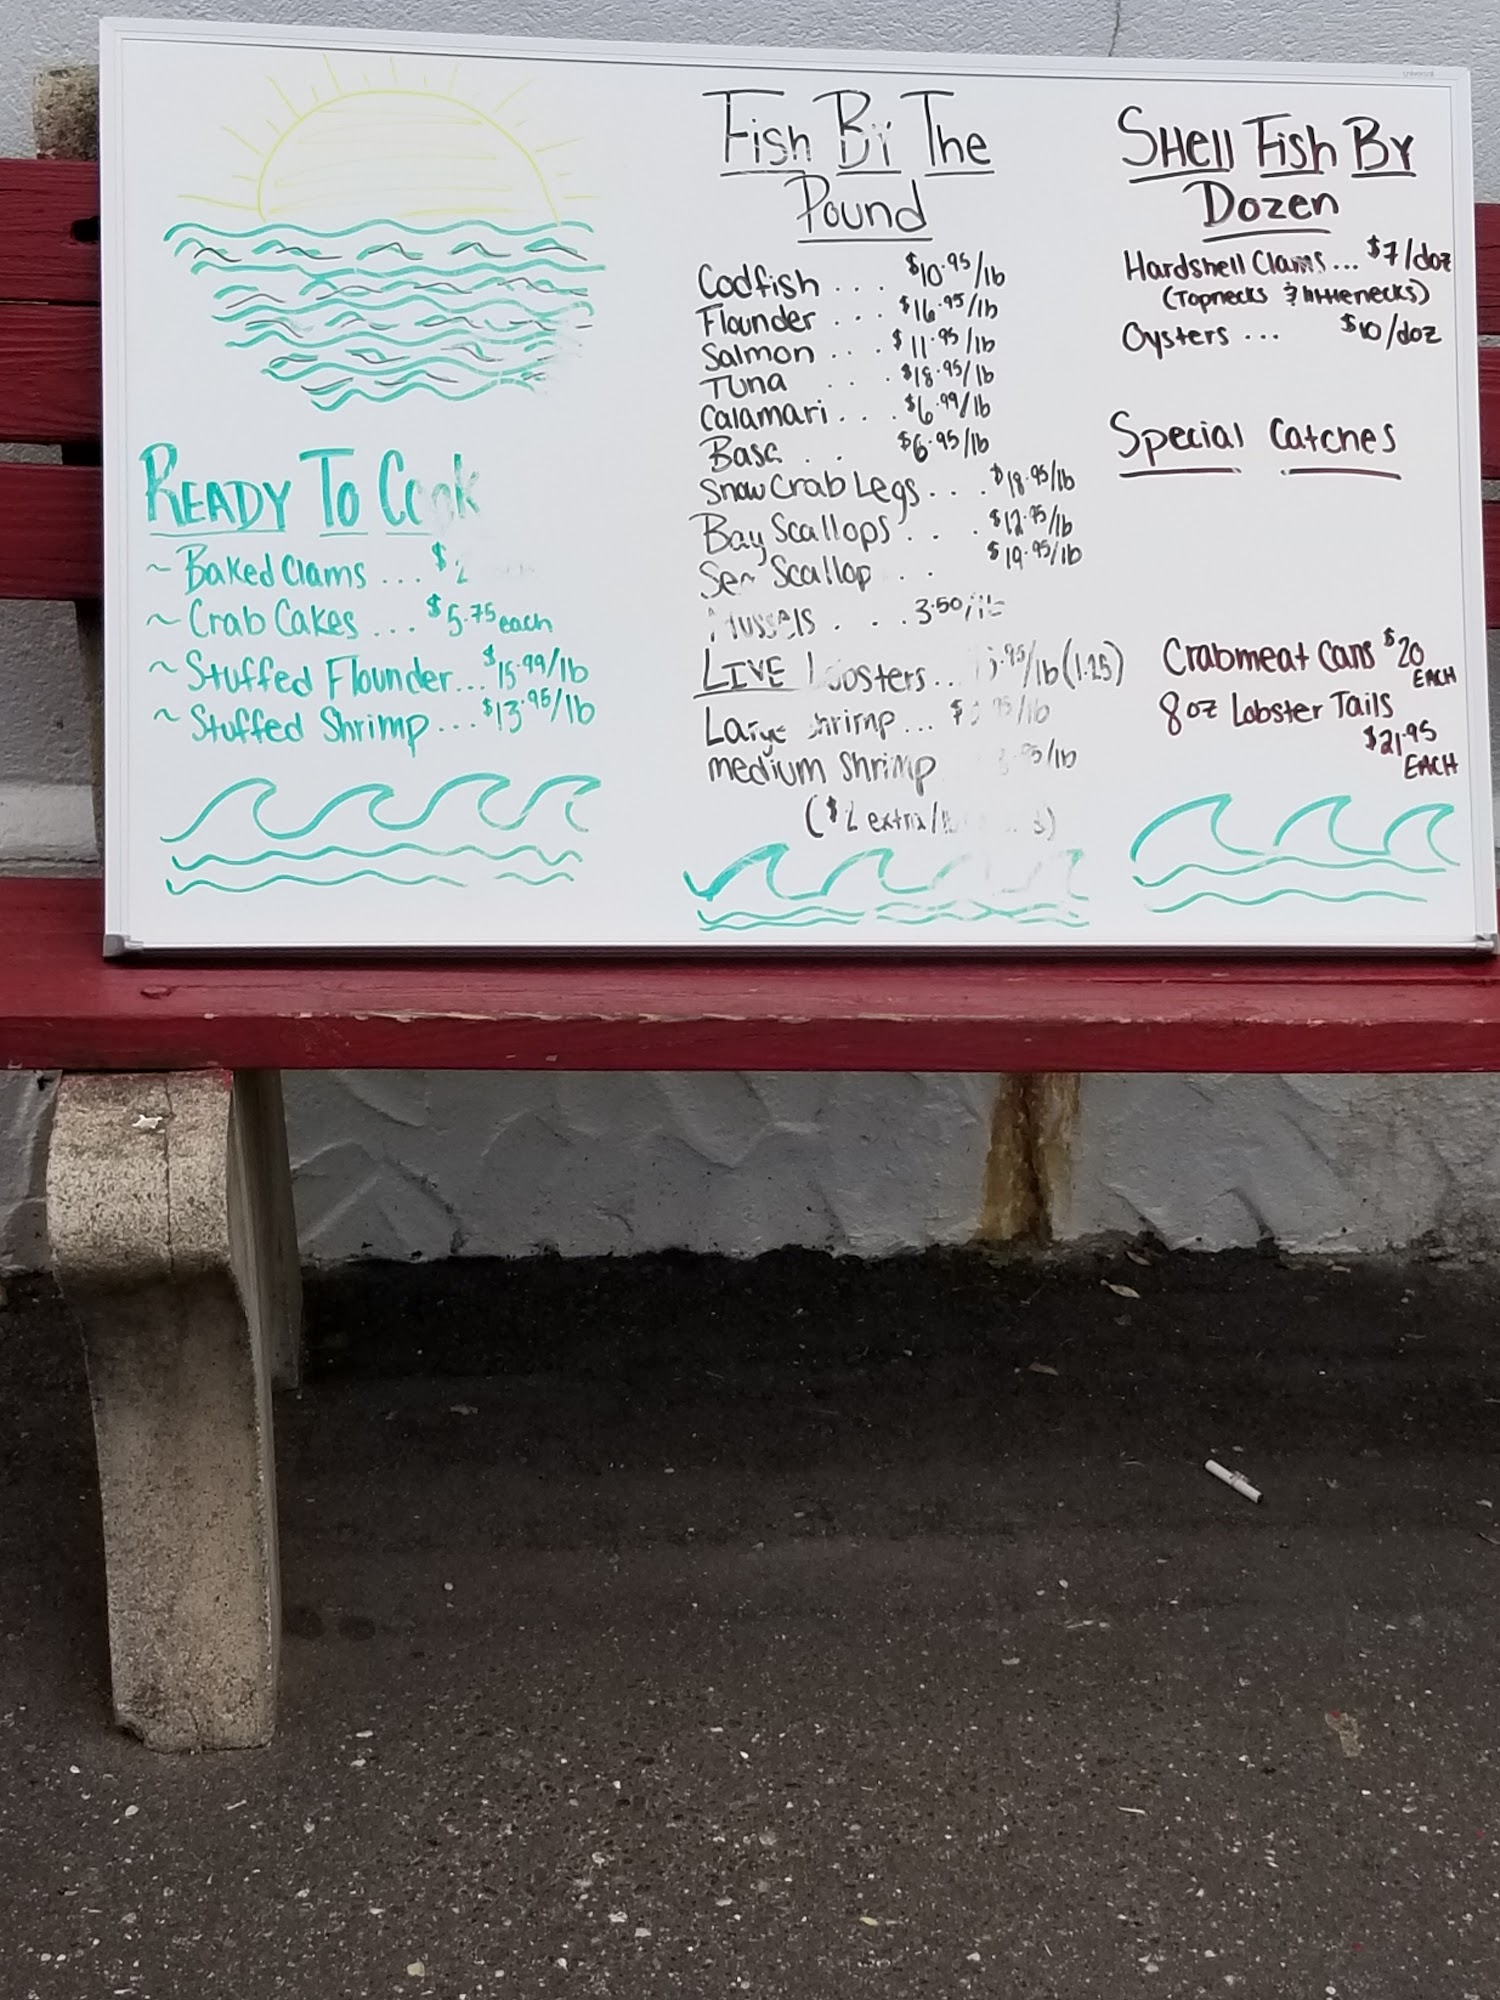 universal
READY To Cook
~ Baked Clams ... $
~ Crab Cakes ... $5.75 each
~ Stuffed Flounder... $15.99/lb
~ Stuffed Shrimp... $13.95/lb
Fish By The
Pound
Codfish . . . $10.95/lb
Flounder . . . $16.95/lb
Salmon . . . $11.95/lb
Tuna . . . $18.95/lb
Calamari . . . $6.99/lb
Basa . . $6.95/lb
Snow Crab Legs . . . $18.95/lb
Bay Scallops . . . $12.95/lb
Sea Scallop . . $19.95/lb
Mussels . . . . 3.50/lb
LIVE Lobsters ... /lb (1.25)
Large Shrimp ... $ /lb
medium Shrimp /lb
($2 extra/
SHell Fish By
Dozen
Hardshell Clams... $7/doz
(Topnecks & littlenecks)
Oysters ... $10/doz
Special Catches
Crabmeat Cans $20
EACH
8oz Lobster Tails
$21.95
EACH